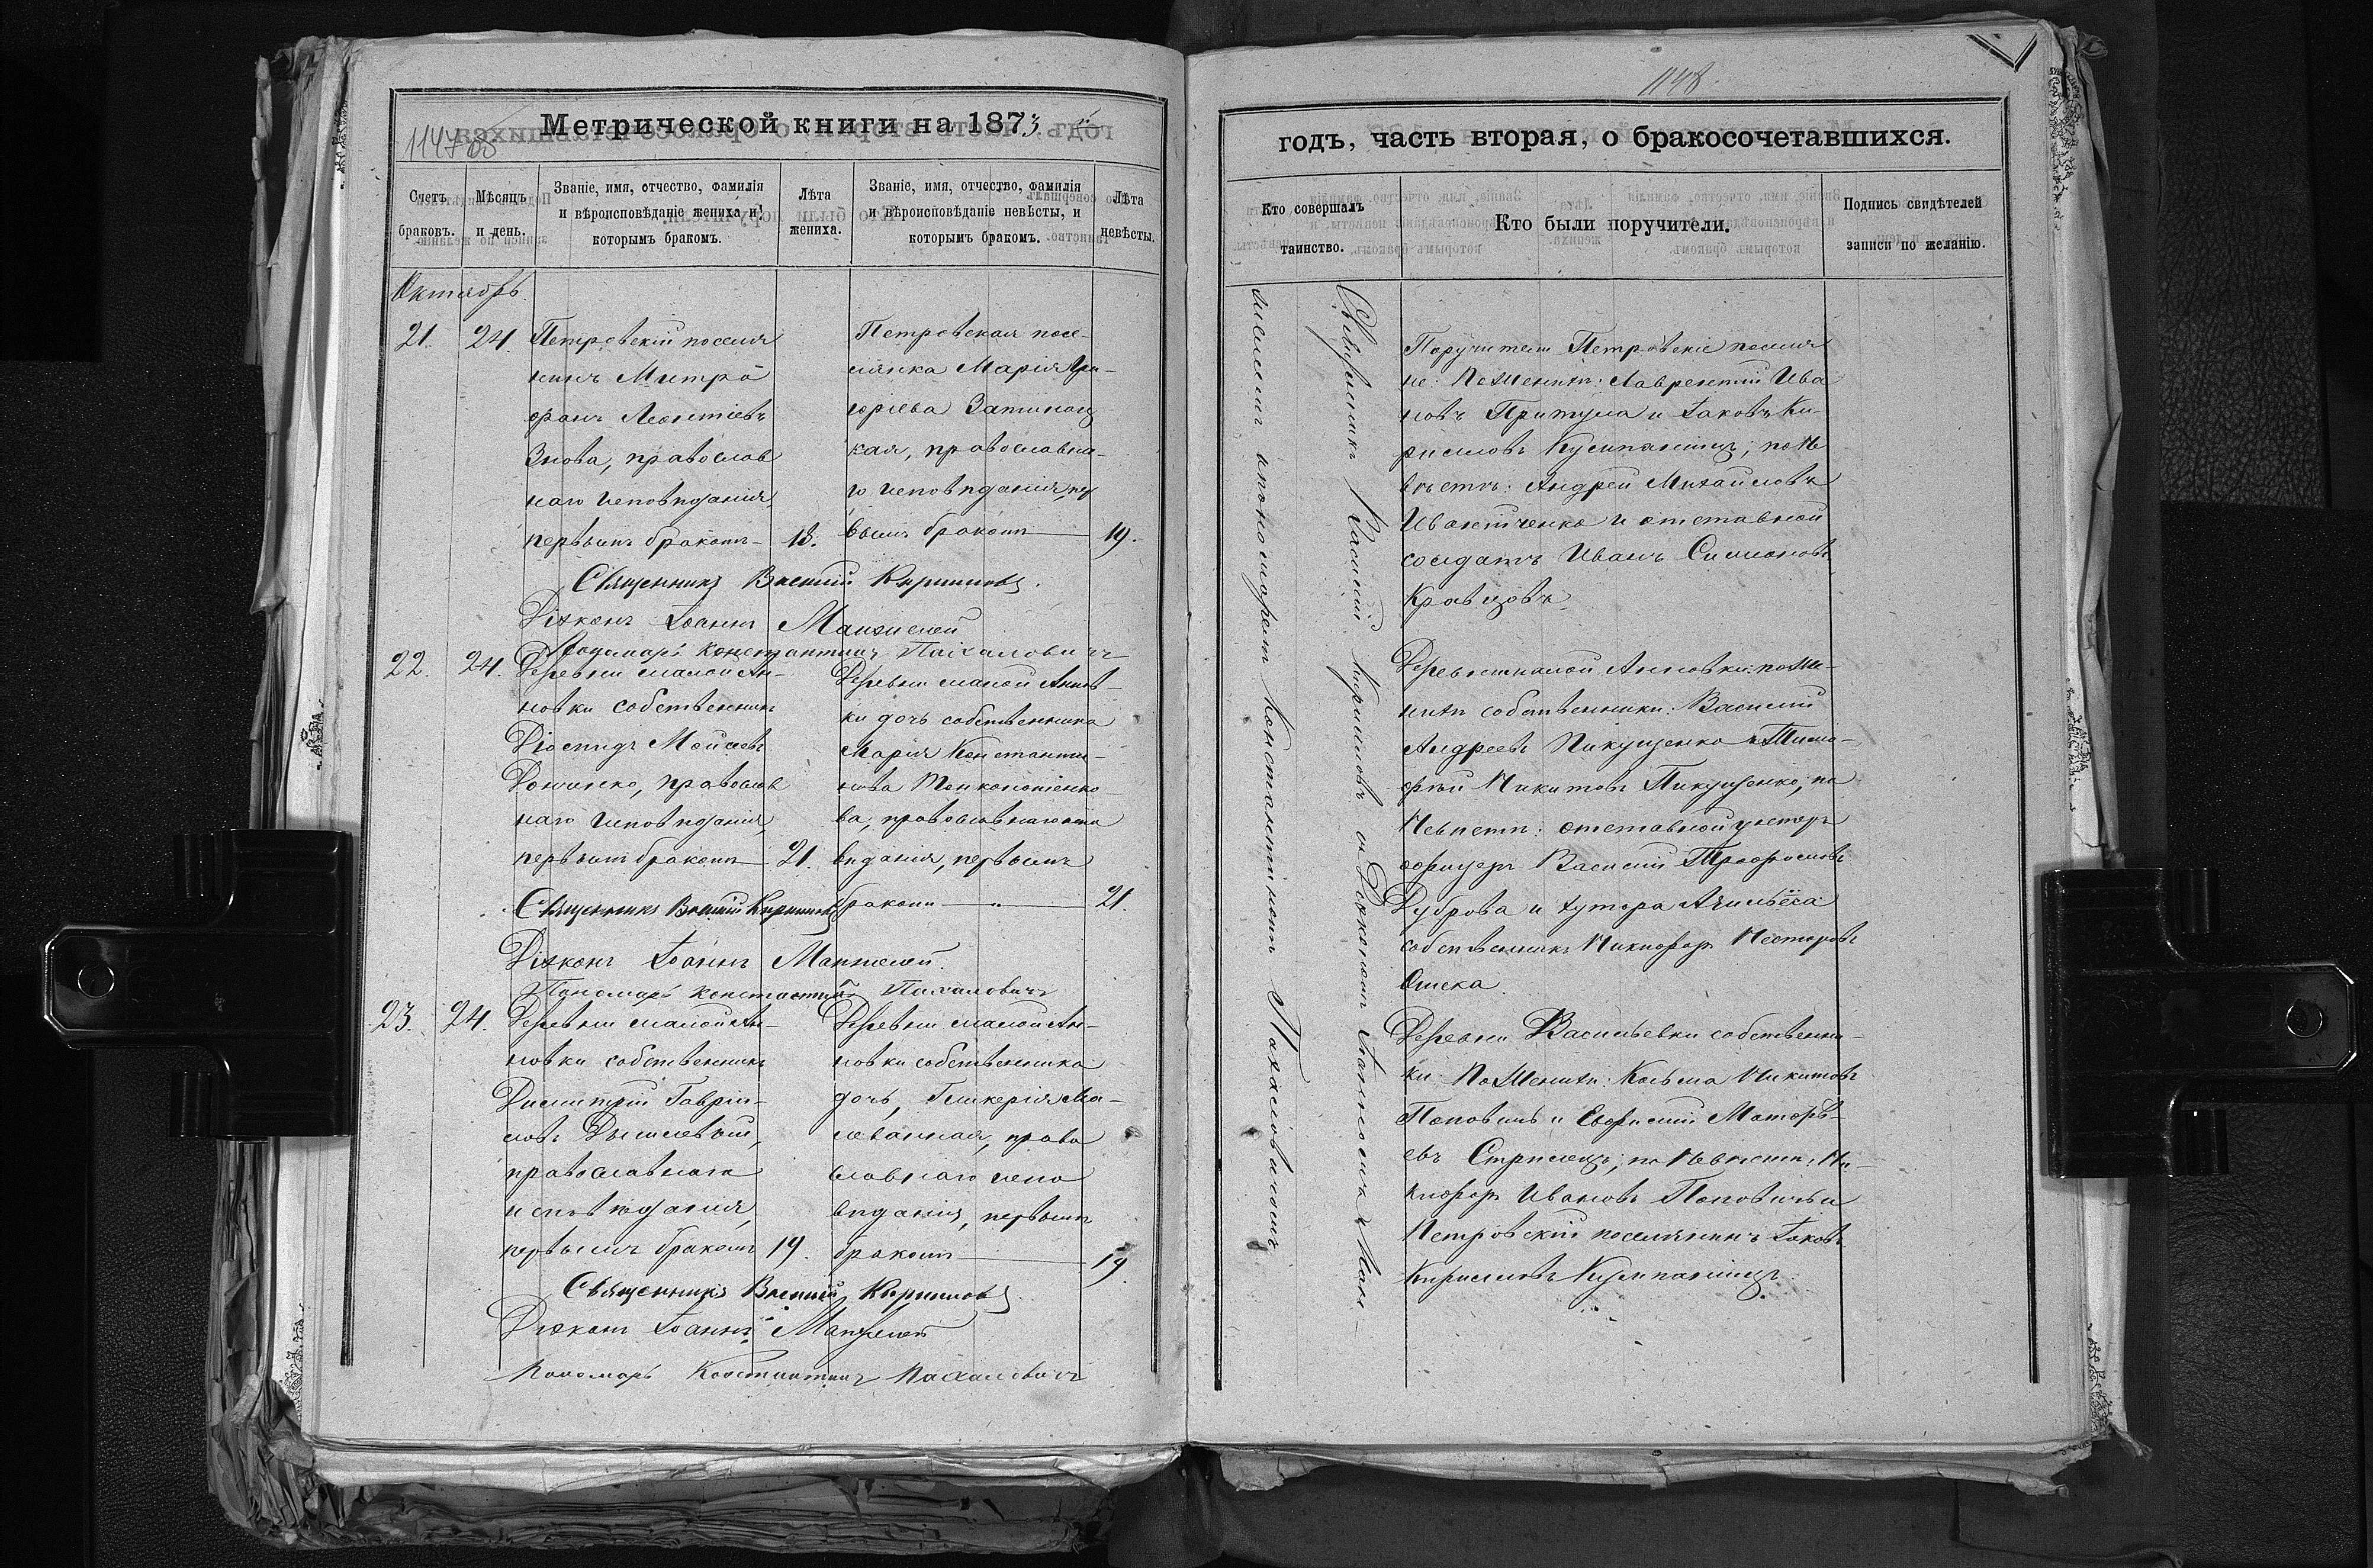 Метрической книги на 1873
1147
Счетъ браковъ.
Мѣсяцъ и день.
Званіе, имя, отчество, фамилія
и вѣроисповѣданіе жениха и
которымъ бракомъ.
Лѣта
жениха.
Званіе, имя, отчество, фамилія
и вѣроисповѣданіе невѣсты, и
которымъ бракомъ.
Лѣта
невѣсты.
Октябрь.
21. 24.
Петровскій поселя
нинъ Митро
фанъ Леонтіевъ
православ
наго исповѣданія,
первымъ бракомъ 18.
Петровская посе-
лянка Марія Гри-
горіева
кая, православна-
го исповѣданія, пер
вымъ бракомъ 19.
Священникъ Василій Кириловъ.
Діаконъ Іоаннъ Манжелей
Пономарь Константинъ Пахаловичъ
22. 24.
Деревни малой Ан-
новки собственникъ
Діомидъ Моисеевъ
православ
наго исповѣданія,
первымъ бракомъ 21.
Деревни малой Аннов-
ки дочь собственника
Марія Константи-
нова
ва, православнаго испо
вѣданія, первымъ
бракомъ 21.
Священникъ Василій Кириловъ
Діаконъ Іоаннъ Манжелей.
Пономарь Константинъ Пахаловичъ
23. 24.
Деревни малой Ан-
новки собственникъ
Димитрій Гаврии-
ловъ
православнаго
исповѣданія,
первымъ бракомъ 19.
Деревни малой Ан-
новки собственника
дочь, Гликерія Ма-
право
славнаго испо
вѣданія, первымъ
бракомъ 19.
Священникъ Василій Кириловъ.
Діаконъ Іоаннъ Манжелей
Пономарь Константинъ Пахаловичъ
1148.
годъ, часть вторая, о бракосочетавшихся.
Кто совершалъ
таинство.
Кто были поручители.
Подпись свидѣтелей
записи по желанію.
Священникъ Василій Кириловъ и Діаконом Іоанномъ Ман-
желеемъ и пономаремъ Константиномъ Пахаловичемъ
Поручители Петровскіе поселя
не: по Женихѣ: Лаврентій Ива
новъ Притула и Іаковъ Ки-
риловъ по Не
вѣстѣ: Андрей Михайловъ
и отставной
солдатъ Иванъ Симоновъ
Кравцовъ.
Деревни малой Анновки: по Же-
нихѣ собственники: Василій
Андреевъ Пикущенко и Тимо-
фѣй Никитовъ Пикущенко, по
Невѣстѣ: отставной унтеръ
офицеръ Василій Трофимовъ
Дуброва и хутора
собственникъ Никифоръ Несторовъ
Деревни Васильевки собственни-
ки: По Женихѣ: Козьма Никитовъ
Поповичъ и
евъ Стрилецъ; по Невѣстѣ: Ни-
кифоръ Ивановъ Поповичъ и
Петровскій поселянинъ Іаковъ
Кириловъ